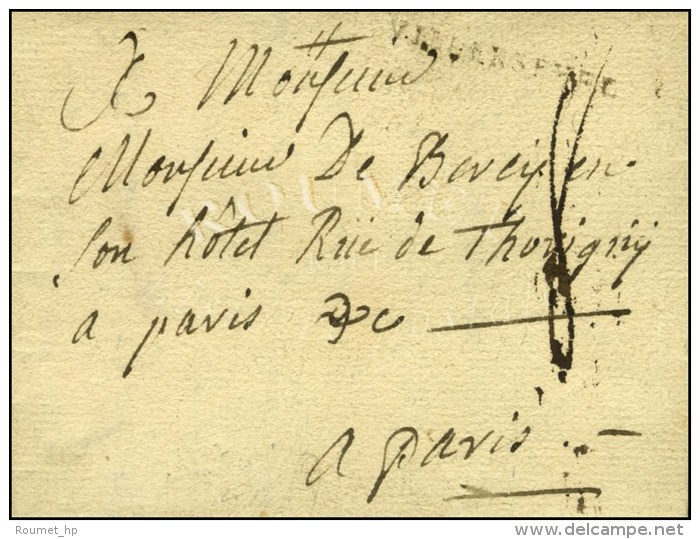 A Monsieur
Monsieur De Bercy en
son hôtel Rue de Thorigny
a paris &c
a paris
Roumet_hp
delcampe.net